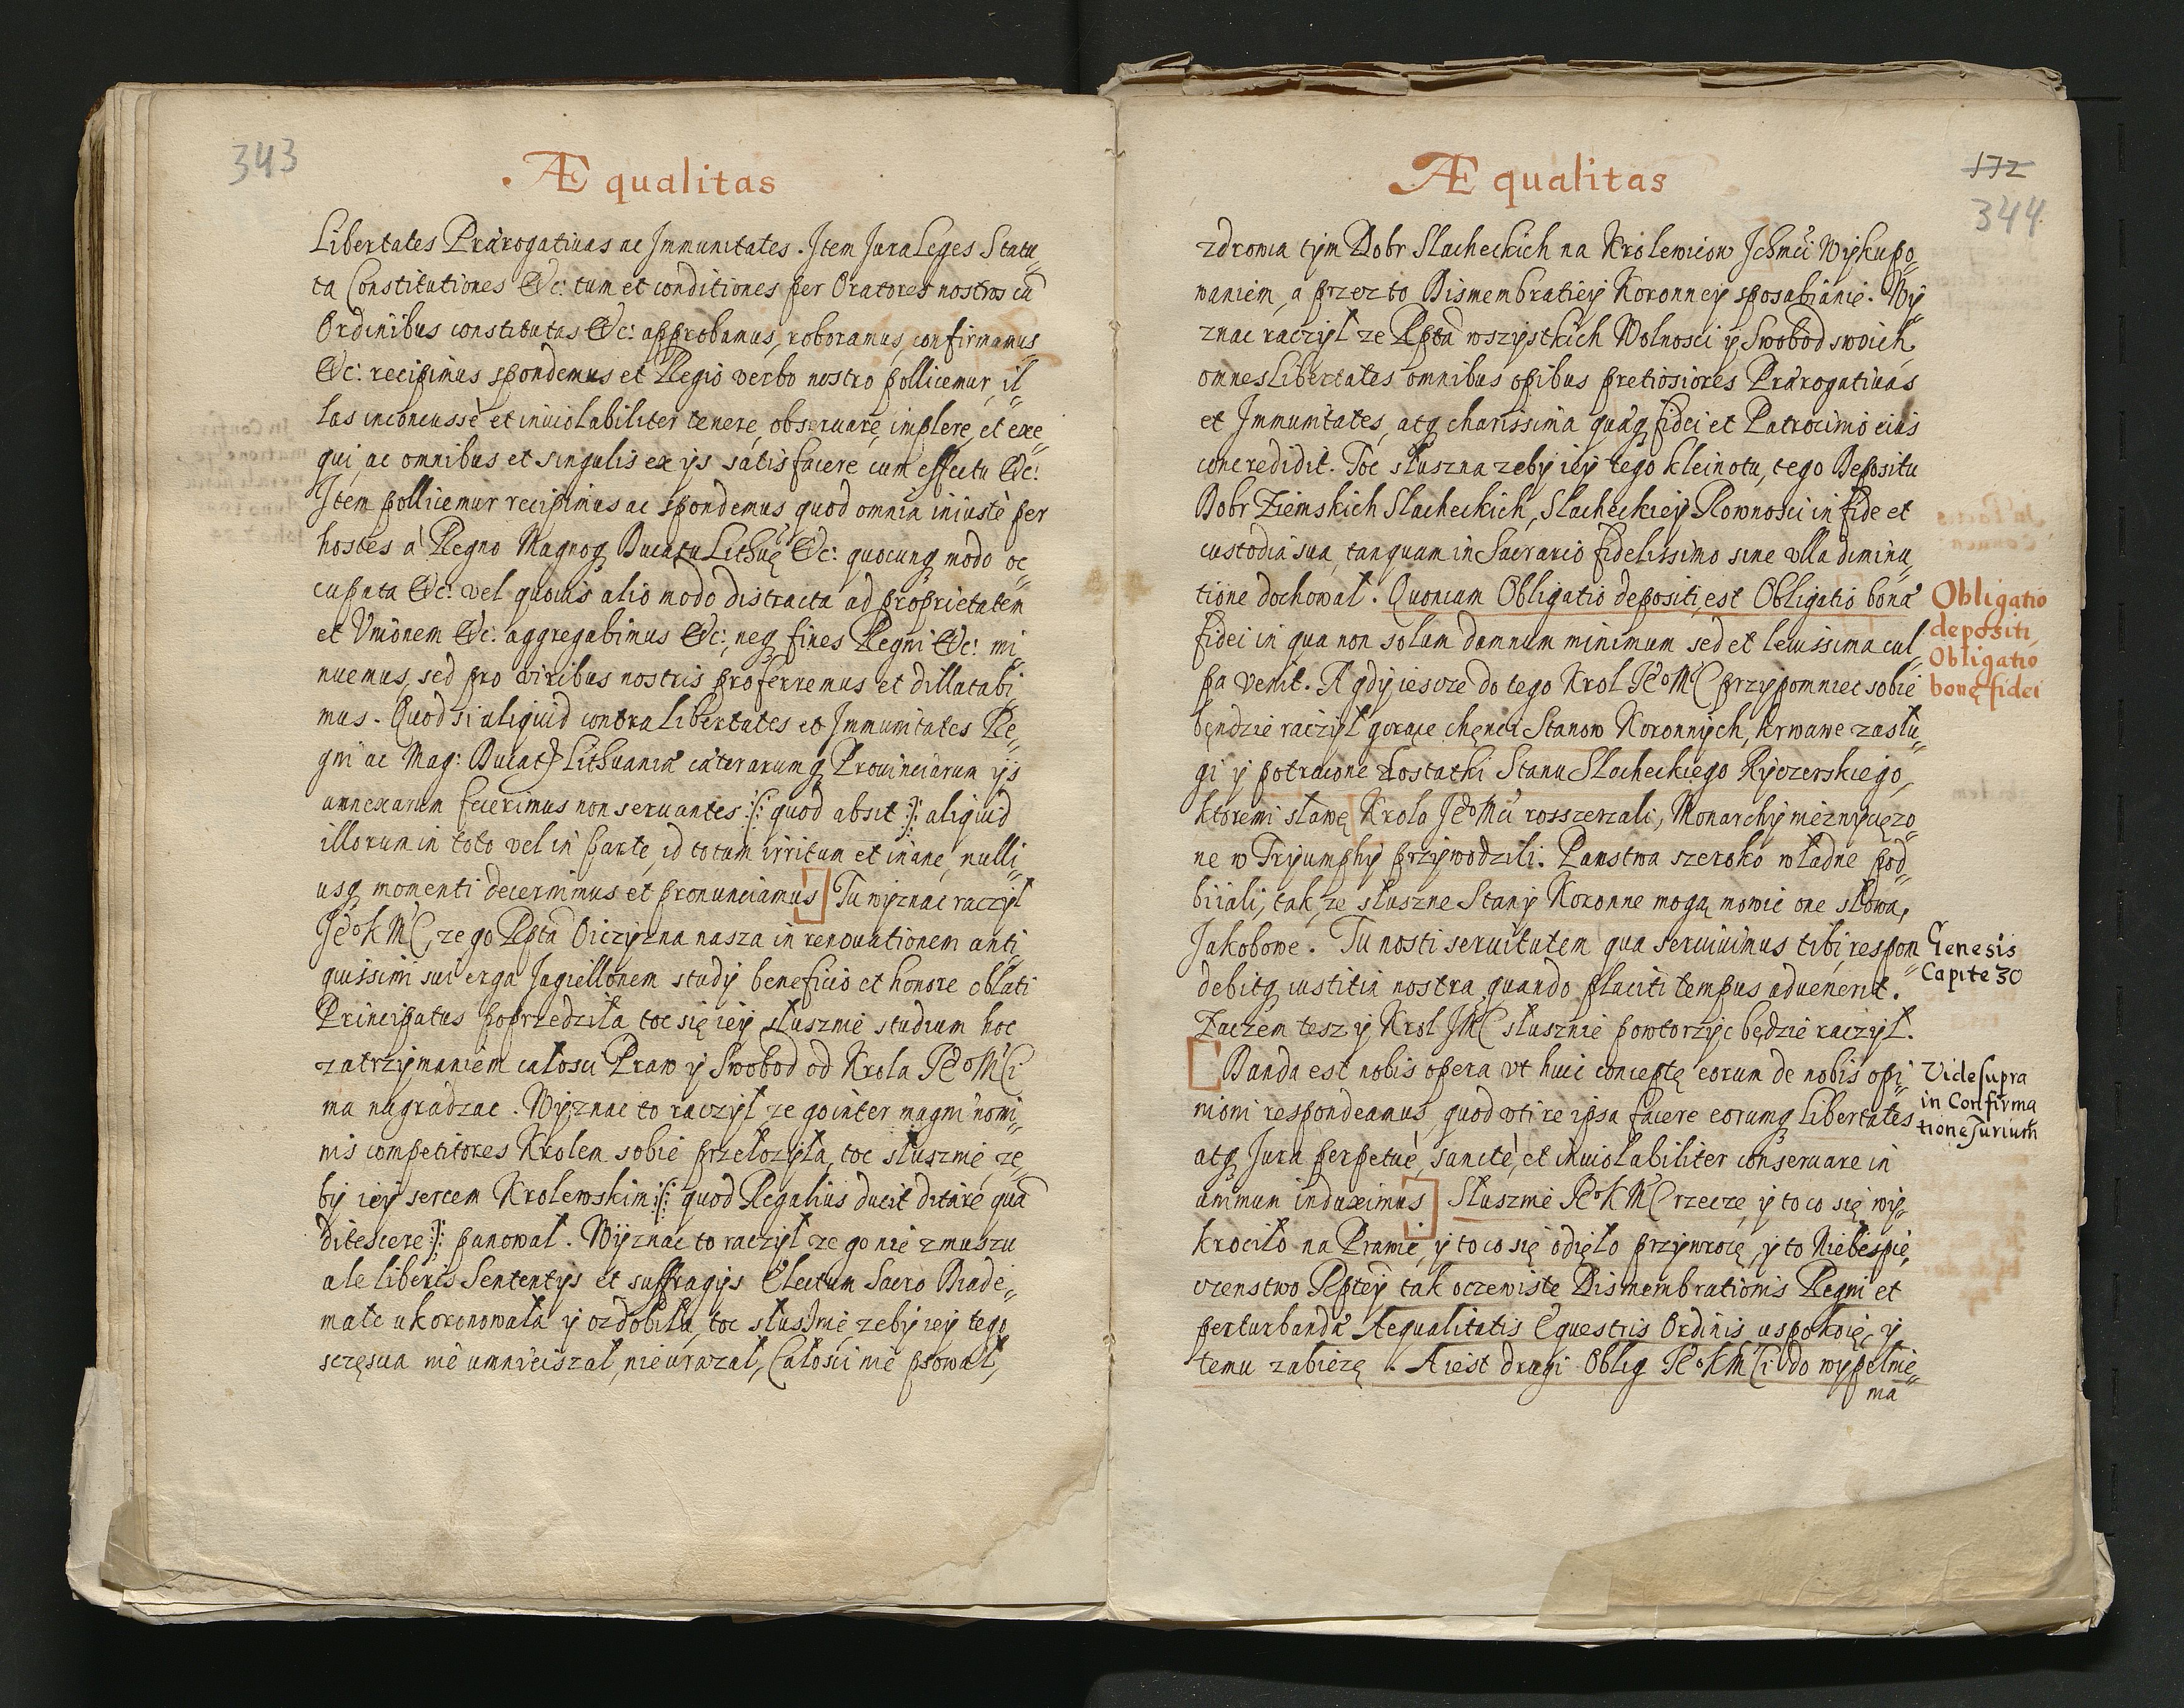 343
Æqualitas
Libertates Prærogatiuas ac Jmmunitates. Jtem Jura Leges Statu„
ta Constitutiones &c: tum et conditiones per Oratores nostros cū
Ordinibus constitutas &c: approbamus, roboramus, confirmamus
&c: recipimus spondemus et Regio verbo nostro pollicemur, il„
las inconcussè et inuiolabiliter tenere, obseruare, implere, et exe„
qui, ac omnibus et singulis ex ijs satisfacere cum effectu &c:
Jtem pollicemur recipimus ac spondemus quod omnia iniustè per
hostes à Regno Magnoq Ducatu Lithuę &c: quocunq modo oc„
cupata &c: vel quouis alio modo distracta ad proprietatem
et Vnionem &c: aggregabimus &c: neq fines Regni &c: mi„
nuemus, sed pro viribus nostris proferremus et dillatabi„
mus. Quod si aliquid contra libertates et Jmmunitates Re„
gni ac Mag: Ducat9 Lithuaniæ cæterarumq Prouinciarum ijs
annexarum fecerimus non seruantes :/: quod absit :/: aliquid
illorum in toto vel in parte, id totum irritum et inane, nulli„
usq momenti decernimus et pronunciamus] Tu wyznać raczył
JeoKMC, ze go Rptā Oiczyzna nasza in renouationem anti„
quissimi sui erga Jagiellonem studij beneficio et honore oblati
Principatus poprzedziła toc się iey słusznie studium hoc
zatrzymaniem całosci Praw y Swobod od Krola JeoMCi
ma nagradzac. Wyznac to raczył, ze go inter magni nomi„
nis competitores Krolem sobie przełozyła, toc słusznie ze„
by iey sercem Krolewskim :/: quod Regalius ducit ditare quā
ditescere :/: panował. Wyznac to raczył ze go nie z muszu
ale liberis Sententijs et suffragijs Electum Sacro Diade„
mate ukoronowała y ozdobiła, toc słusznie, zeby iey tego
sczęscia nie umnieiszał, nie urazał, Całosci nie psował,
172
344
Æqualitas
zdrowia tym Dobr Slacheckich na Krolewicow Jchmci Wykupo„
waniem, a przez to Dismembratiey Koronney sposabianie. Wy„
znac raczył ze Rpta wszystkich Wolnosci y Swobod swoich
omnes Libertates omnibus opibus pretiosiores Prærogatiuas
et Jmmunitates, atq charissima quæq fidei et Patrocinio eius
concredidit. Toc słuszna zeby iey tego kleinotu, tego Depositu
Dobr Ziemskich Slacheckich, Slacheckiey Rownosci in fide et
custodia sua, tanquam in Sacrario fidelissimo sine vlla diminu„
tione dochował. Quoniam Obligatio depositi est Obligatio bonæ
fidei in qua non solum damnum minimum sed et leuissima cul„
pa venit. A gdy iescze do tego Krol JeoMC przypomniec sobie
będzie raczył gorące chęnci Stanow Koronnych, krwawe zasłu„
gi y potracone dostatki Stanu Slacheckiego Rycerskiego,
ktoremi sławę Krola JeoMci rosszerzali, Monarchy niezwycięzo„
ne w Tryumphy przywodzili. Panstwa szeroko władne pod„
biiali, tak, ze słuszne Stany Koronne mogą mowic one słowa,
Jakobowe. Tu nosti seruitutem qua seruiuimus tibi, respon„
debitq iustitia nostra, quando placiti tempus aduenerit.
Zaczem tesz y Krol JMC słusznie powtorzyc będzie raczył.
[Danda est nobis opera vt huic conceptę eorum de nobis opi„
nioni respondeamus, quod vti re ipsa facere eorumq libertates
atq Jura perpetuè, sanctè, et inuiolabiliter conseruare in
animum induximus] Słusznie JeoKMC rzecze, y to co się wy„
krociło na Prawie, y to co się odięło przywrocę, y to Niebespie„
czenstwo Rptey tak oczewiste Dismembrationis Regni et
perturbandæ Aequalitatis Equestris Ordinis uspokoię, y
temu zabiezę. A iest drugi Oblig JeoKMCi do wypełnie„
nia
Obligatio
depositi,
Obligatio
bonę fidei
Genesis
Capite 30
Vide supra
in Confirma
tione Jurium